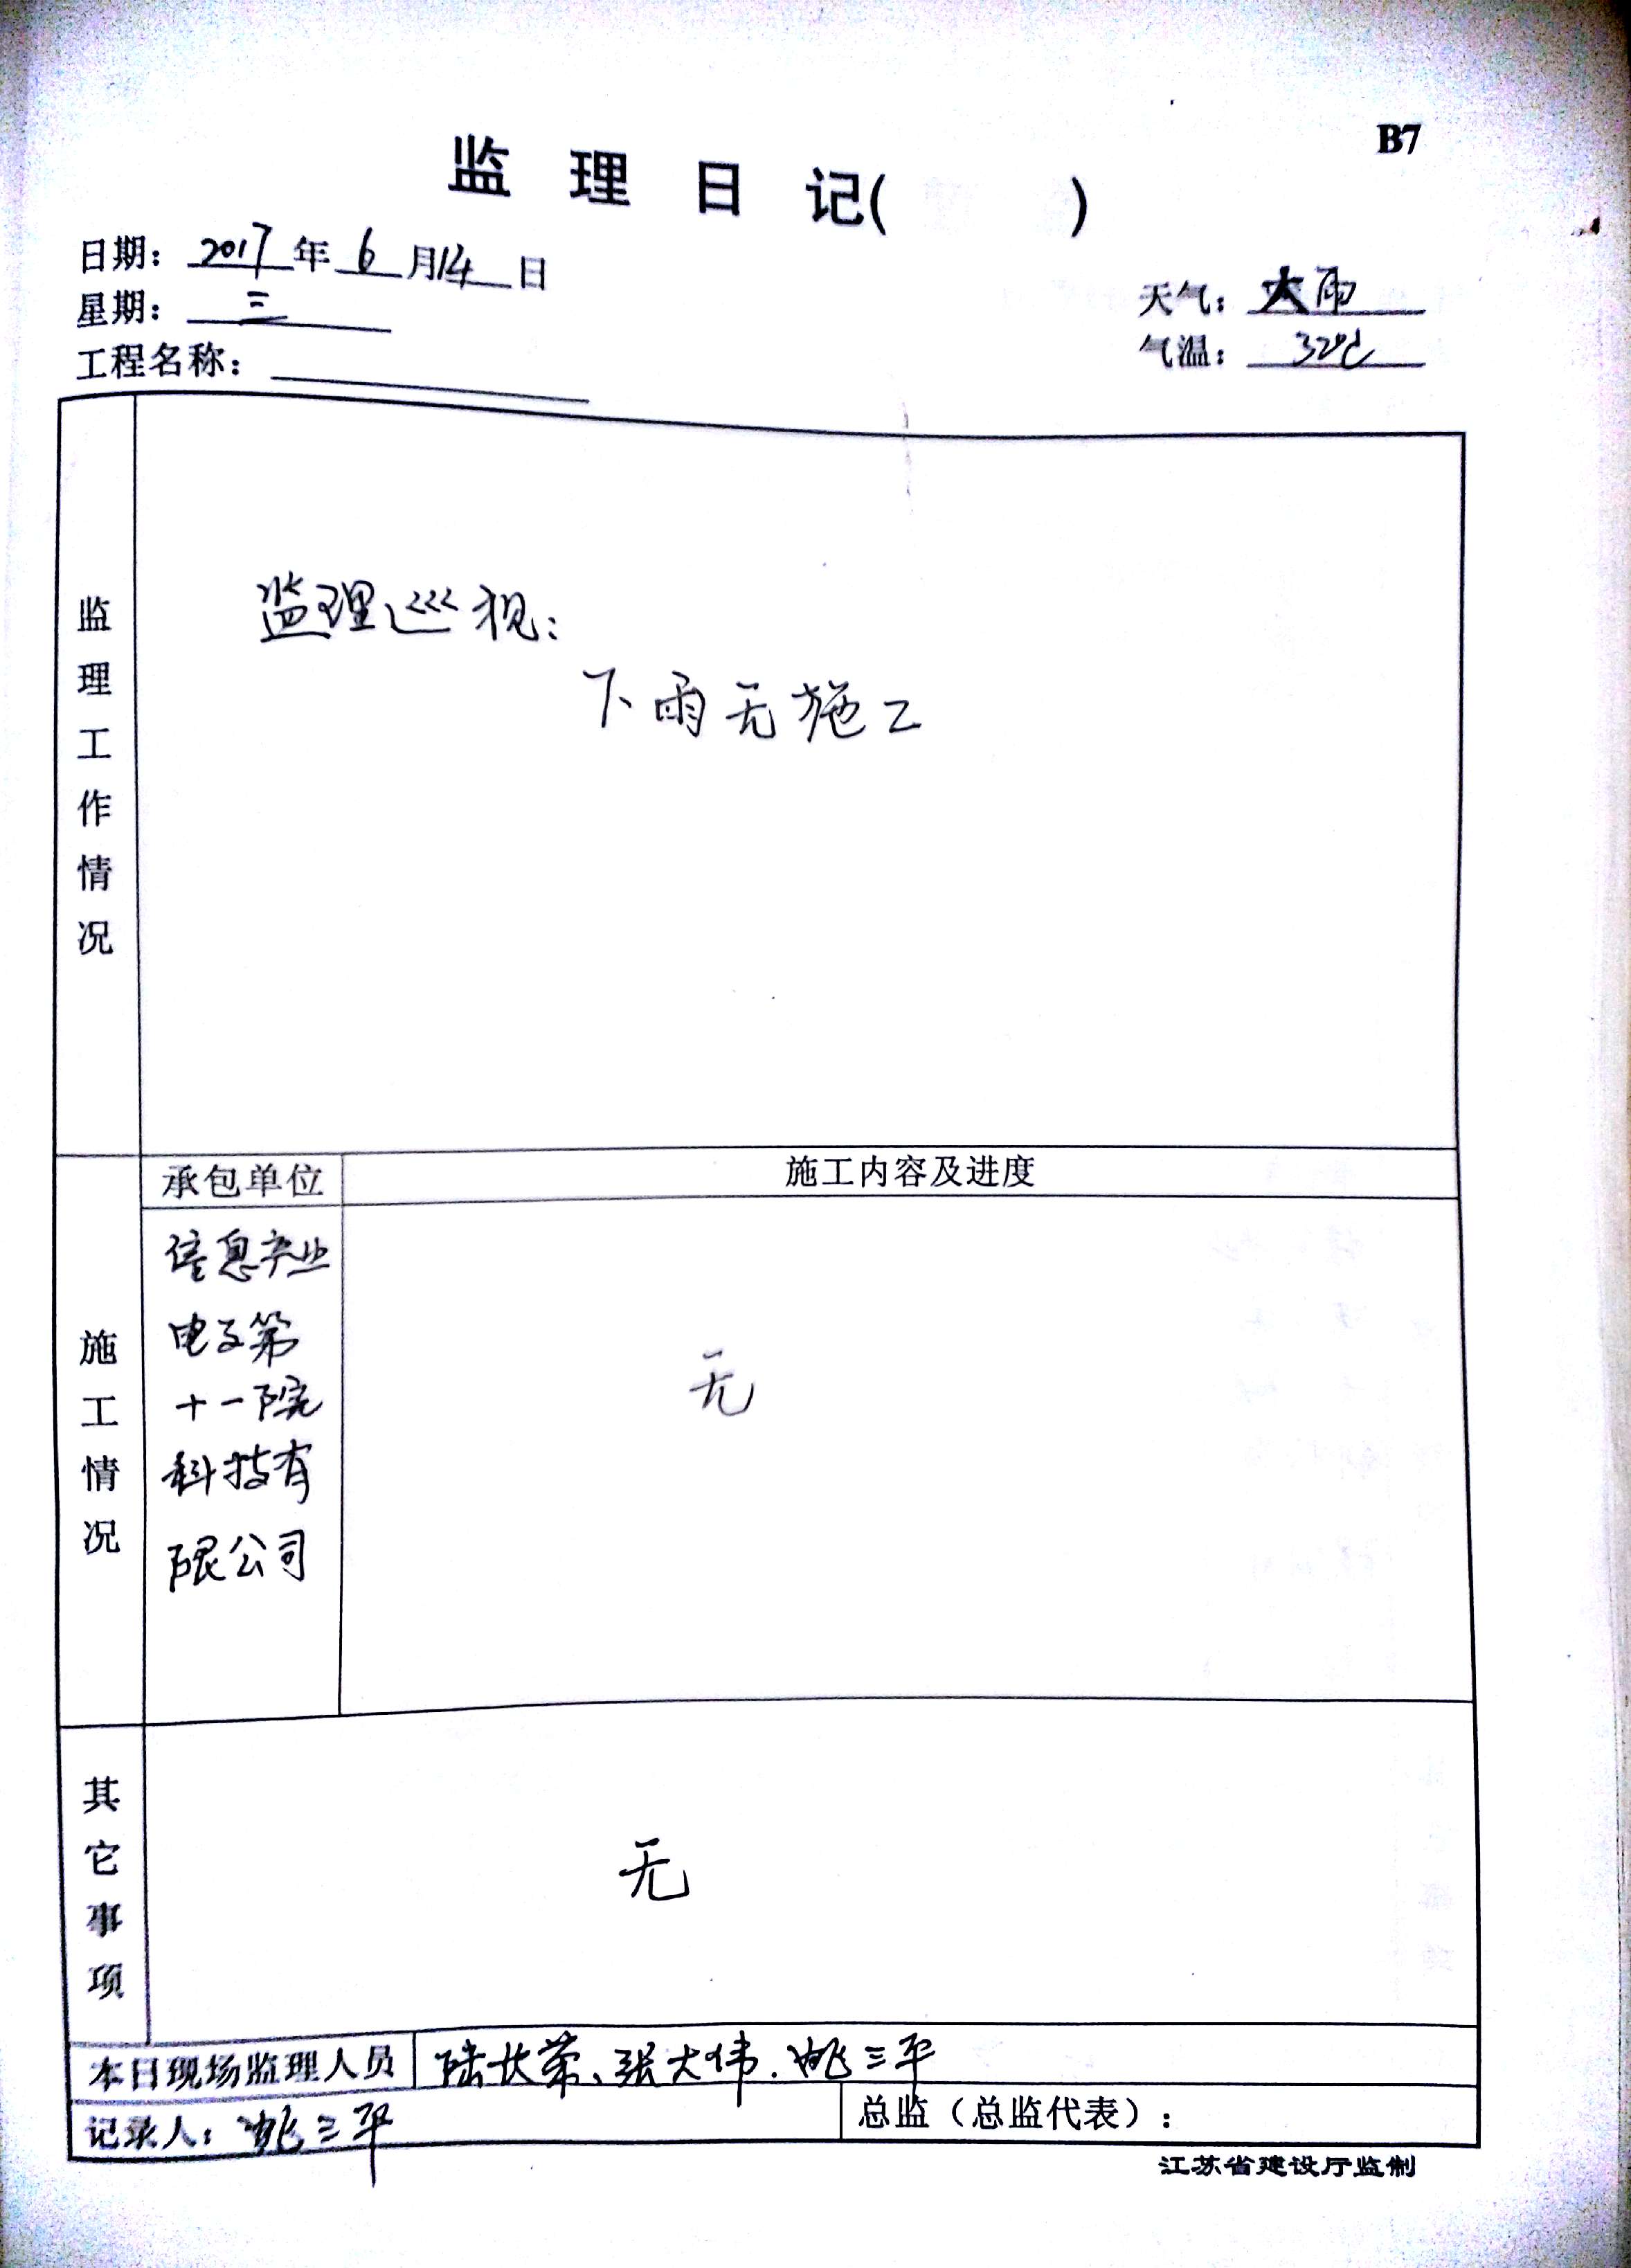 B7
监理日记(　　)
日期：2017年6月14日
星期：三
天气：大雨
工程名称：
气温：32℃
监理工作情况
监理巡视：
下雨无施工
施工情况
承包单位
施工内容及进度
信息产业
电子第
十一院
科技有
限公司
无
其它事项
无
本日现场监理人员
陆长荣、张大伟、姚三平
记录人：姚三平
总监（总监代表）：
江苏省建设厅监制